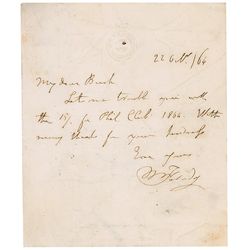 22 Oct /64
My dear Bush
Let me trouble you with
the 15/. for Phil Club 1864. With
many thanks for your kindness
Ever yours